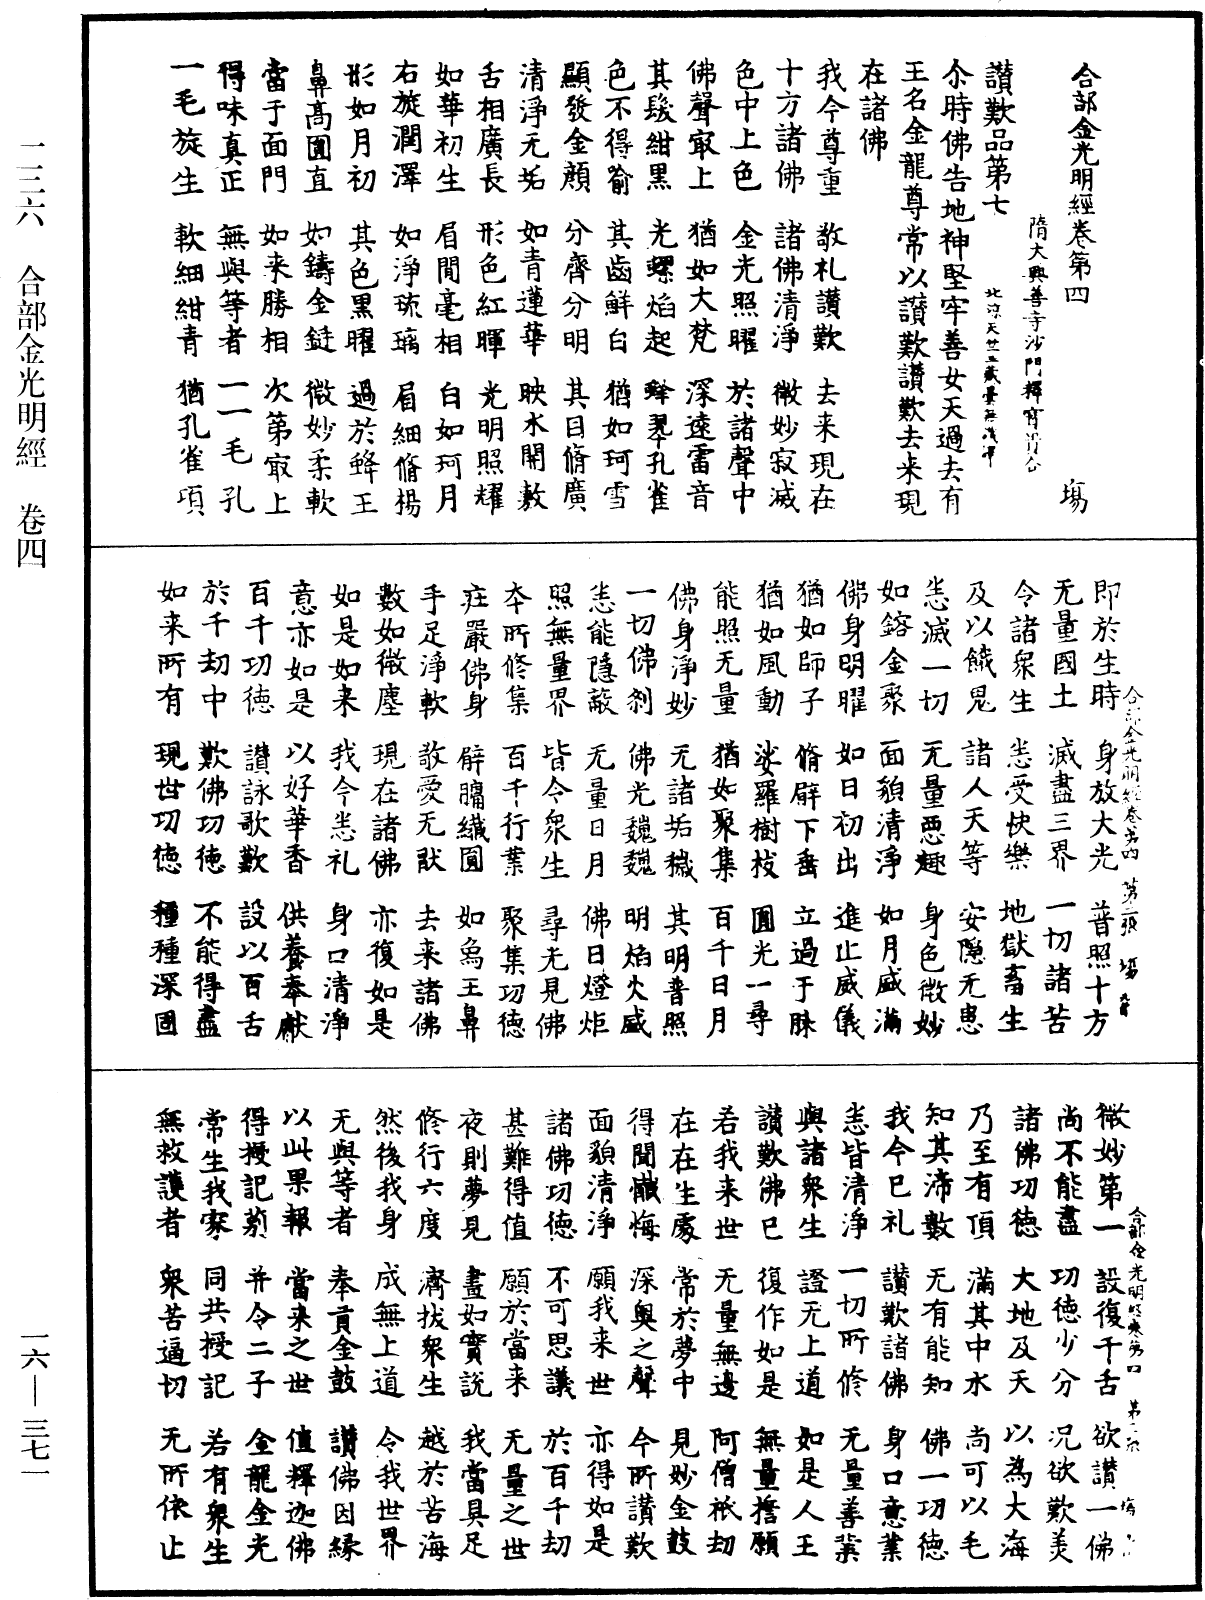 合部金光明經卷第四 塲
隋大興善寺沙門釋寶貴合
讃歎品第七 北涼天竺三藏曇無讖譯
尒時佛告地神堅牢善女天過去有
王名金龍尊常以讃歎讃歎去来現
在諸佛
我今尊重 敬礼讃歎 去来現在
十方諸佛 諸佛清淨 微妙寂滅
色中上色 金光照曜 於諸聲中
佛聲㝡上 猶如大梵 深遠雷音
其髮紺黒 光螺焰起 蜂翠孔雀
色不得喻 其齒鮮白 猶如珂雪
顯發金顔 分齊分明 其目脩廣
清淨无垢 如青蓮華 映水開敷
舌相廣長 形色紅暉 光明照耀
如華初生 眉閒毫相 白如珂月
右旋潤澤 如淨琉璃 眉細脩楊
形如月初 其色黒曜 過於蜂王
鼻髙圓直 如鑄金鋌 微妙柔軟
當于面門 如来勝相 次第㝡上
得味真正 無與等者 一一毛孔
一毛旋生 軟細紺青 猶孔雀項
即於生時 身放大光 普照十方
无量國土 滅盡三界 一切諸苦
令諸衆生 悉受快樂 地獄畜生
及以餓鬼 諸人天等 安隱无患
悉滅一切 无量悪趣 身色微妙
如鎔金聚 面貌清淨 如月盛滿
佛身明曜 如日初出 進止威儀
猶如師子 脩臂下垂 立過于膝
猶如風動 娑羅樹枝 圓光一尋
能照无量 猶如聚集 百千日月
佛身淨妙 无諸垢穢 其明普照
一切佛刹 佛光巍巍 明焰火盛
悉能隱蔽 无量日月 佛日燈炬
照無量界 皆令衆生 尋光見佛
本所修集 百千行業 聚集功德
莊嚴佛身 臂𦟛纎圓 如象王鼻
手足淨軟 敬愛无猒 去来諸佛
數如微塵 現在諸佛 亦復如是
如是如来 我今悉礼 身口清淨
意亦如是 以好華香 供養奉獻
百千功徳 讃詠歌歎 設以百舌
於千劫中 歎佛功徳 不能得盡
如来所有 現世功徳 種種深固
合部金光明經卷第四 第二張 塲
微妙第一 設復千舌 欲讃一佛
尚不能盡 功徳少分 況欲歎美
諸佛功徳 大地及天 以為大海
乃至有頂 滿其中水 尚可以毛
知其渧數 无有能知 佛一功徳
我今已礼 讃歎諸佛 身口意業
悉皆清淨 一切所修 无量善業
與諸衆生 證无上道 如是人王
讃歎佛已 復作如是 無量誓願
若我来世 无量無邊 阿僧祇劫
在在生處 常於夢中 見妙金鼓
得聞懺悔 深奥之聲 今所讃歎
面貌清淨 願我来世 亦得如是
諸佛功徳 不可思議 於百千劫
甚難得值 願於當来 无量之世
夜則夢見 晝如實說 我當具足
修行六度 濟拔衆生 越於苦海
然後我身 成無上道 令我世界
无與等者 奉貢金鼓 讃佛因縁
以此果報 當来之世 值釋迦佛
得授記莂 并令二子 金龍金光
常生我家 同共授記 若有衆生
無救護者 衆苦逼切 无所依止
合部金光明經卷第四
二三六 合部金光明經 卷四
一六—三七一